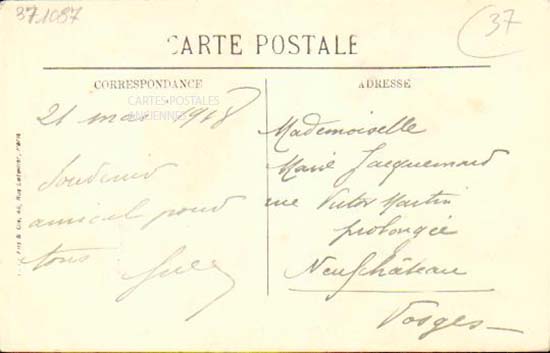 371087
37
CARTE POSTALE
CORRESPONDANCE
ADRESSE
CARTES POSTALES
ANCIENNES
21 mai 1918
Souvenir
amical pour
tous
Mademoiselle
Marie Jacquemard
rue Victor Martin
prolongée
Neufchâteau
Vosges